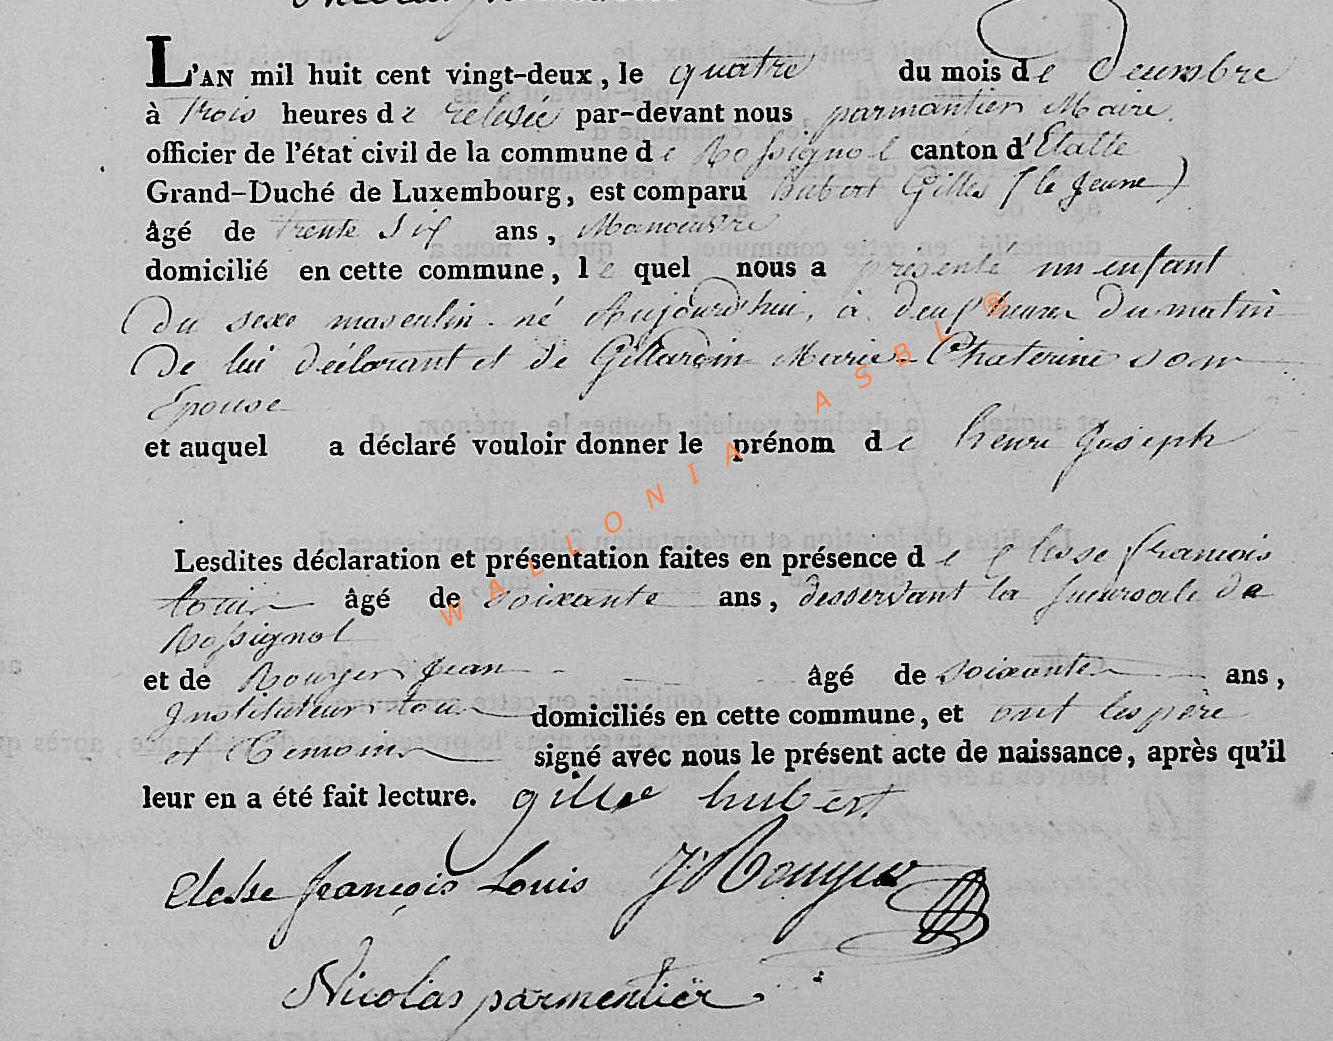 L'AN mil huit cent vingt-deux, le quatre du mois de decembre
à trois heures de relevée par-devant nous parmantier Maire
officier de l'état civil de la commune de Rossignol canton d'Etalle
Grand-Duché de Luxembourg, est comparu hubert Gilles (le jeune)
âgé de trente six ans, Manoeuvre
domicilié en cette commune, le quel nous a présenté un enfant
Du sexe masculin né Aujourd'hui, à deux heures Du matin
De lui déclarant et de Gillardin Marie Chaterine son
Epouse
et auquel a déclaré vouloir donner le prénom de henri Joseph
Lesdites déclaration et présentation faites en présence de Elesse francois
Louis âgé de soixante ans, desservant la sucursale de
Rossignol
et de Rouyer Jean âgé de soixante ans,
Instituteur tous domiciliés en cette commune, et ont les père
et Temoins signé avec nous le présent acte de naissance, après qu'il
leur en a été fait lecture. gilles hubert
Elesse françois Louis J Rouyer
Nicolas parmentier
WALLONIA ASBL ®